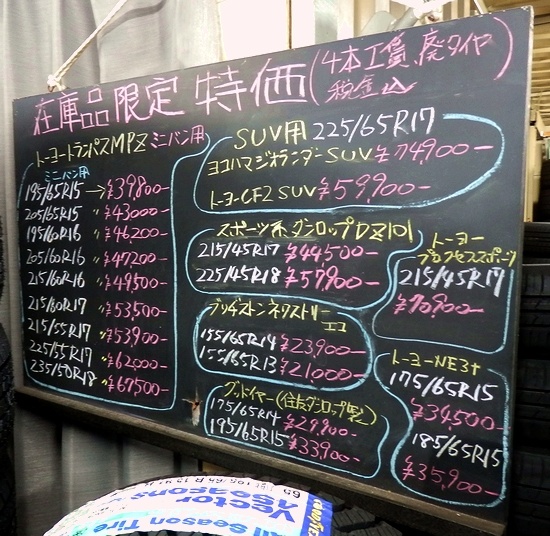 在庫品限定 特価(4本工賃、廃タヤ
税金込
トーヨートランパスMPZ ミニバン用
ミニバン用
195/65R15→¥39800-
205/65R15 〃 ¥43000-
195/60R16 〃 ¥46,200
205/60R16 〃 ¥47,200
215/60R16 〃 ¥49,500-
215/60R17 〃 ¥53,500
215/55R17 〃 ¥53,900
225/55R17 〃 ¥62,000-
235/50R18 〃 ¥67,500
SUV用 225/65R17
ヨコハマジオランダーSUV ¥74,900-
トーヨーCF2SUV ¥59,900-
スポーツ系ダンロップDZ101
215/45R17 ¥44,500-
225/45R18 ¥57,900-
トーヨー
プロクセススポーツ
215/45R17
¥70,900-
ブリヂストンネクストリー
エコ
155/65R14 ¥23,900-
155/65R13 ¥21,000-
グットイヤー(住友ダンロップ製)
175/65R14 ¥29,900-
195/65R15 ¥33,900-
トーヨーNE3+
175/65R15
¥34,500-
185/65R15
¥35,900-
Vector
4Seasons
All Season Tire